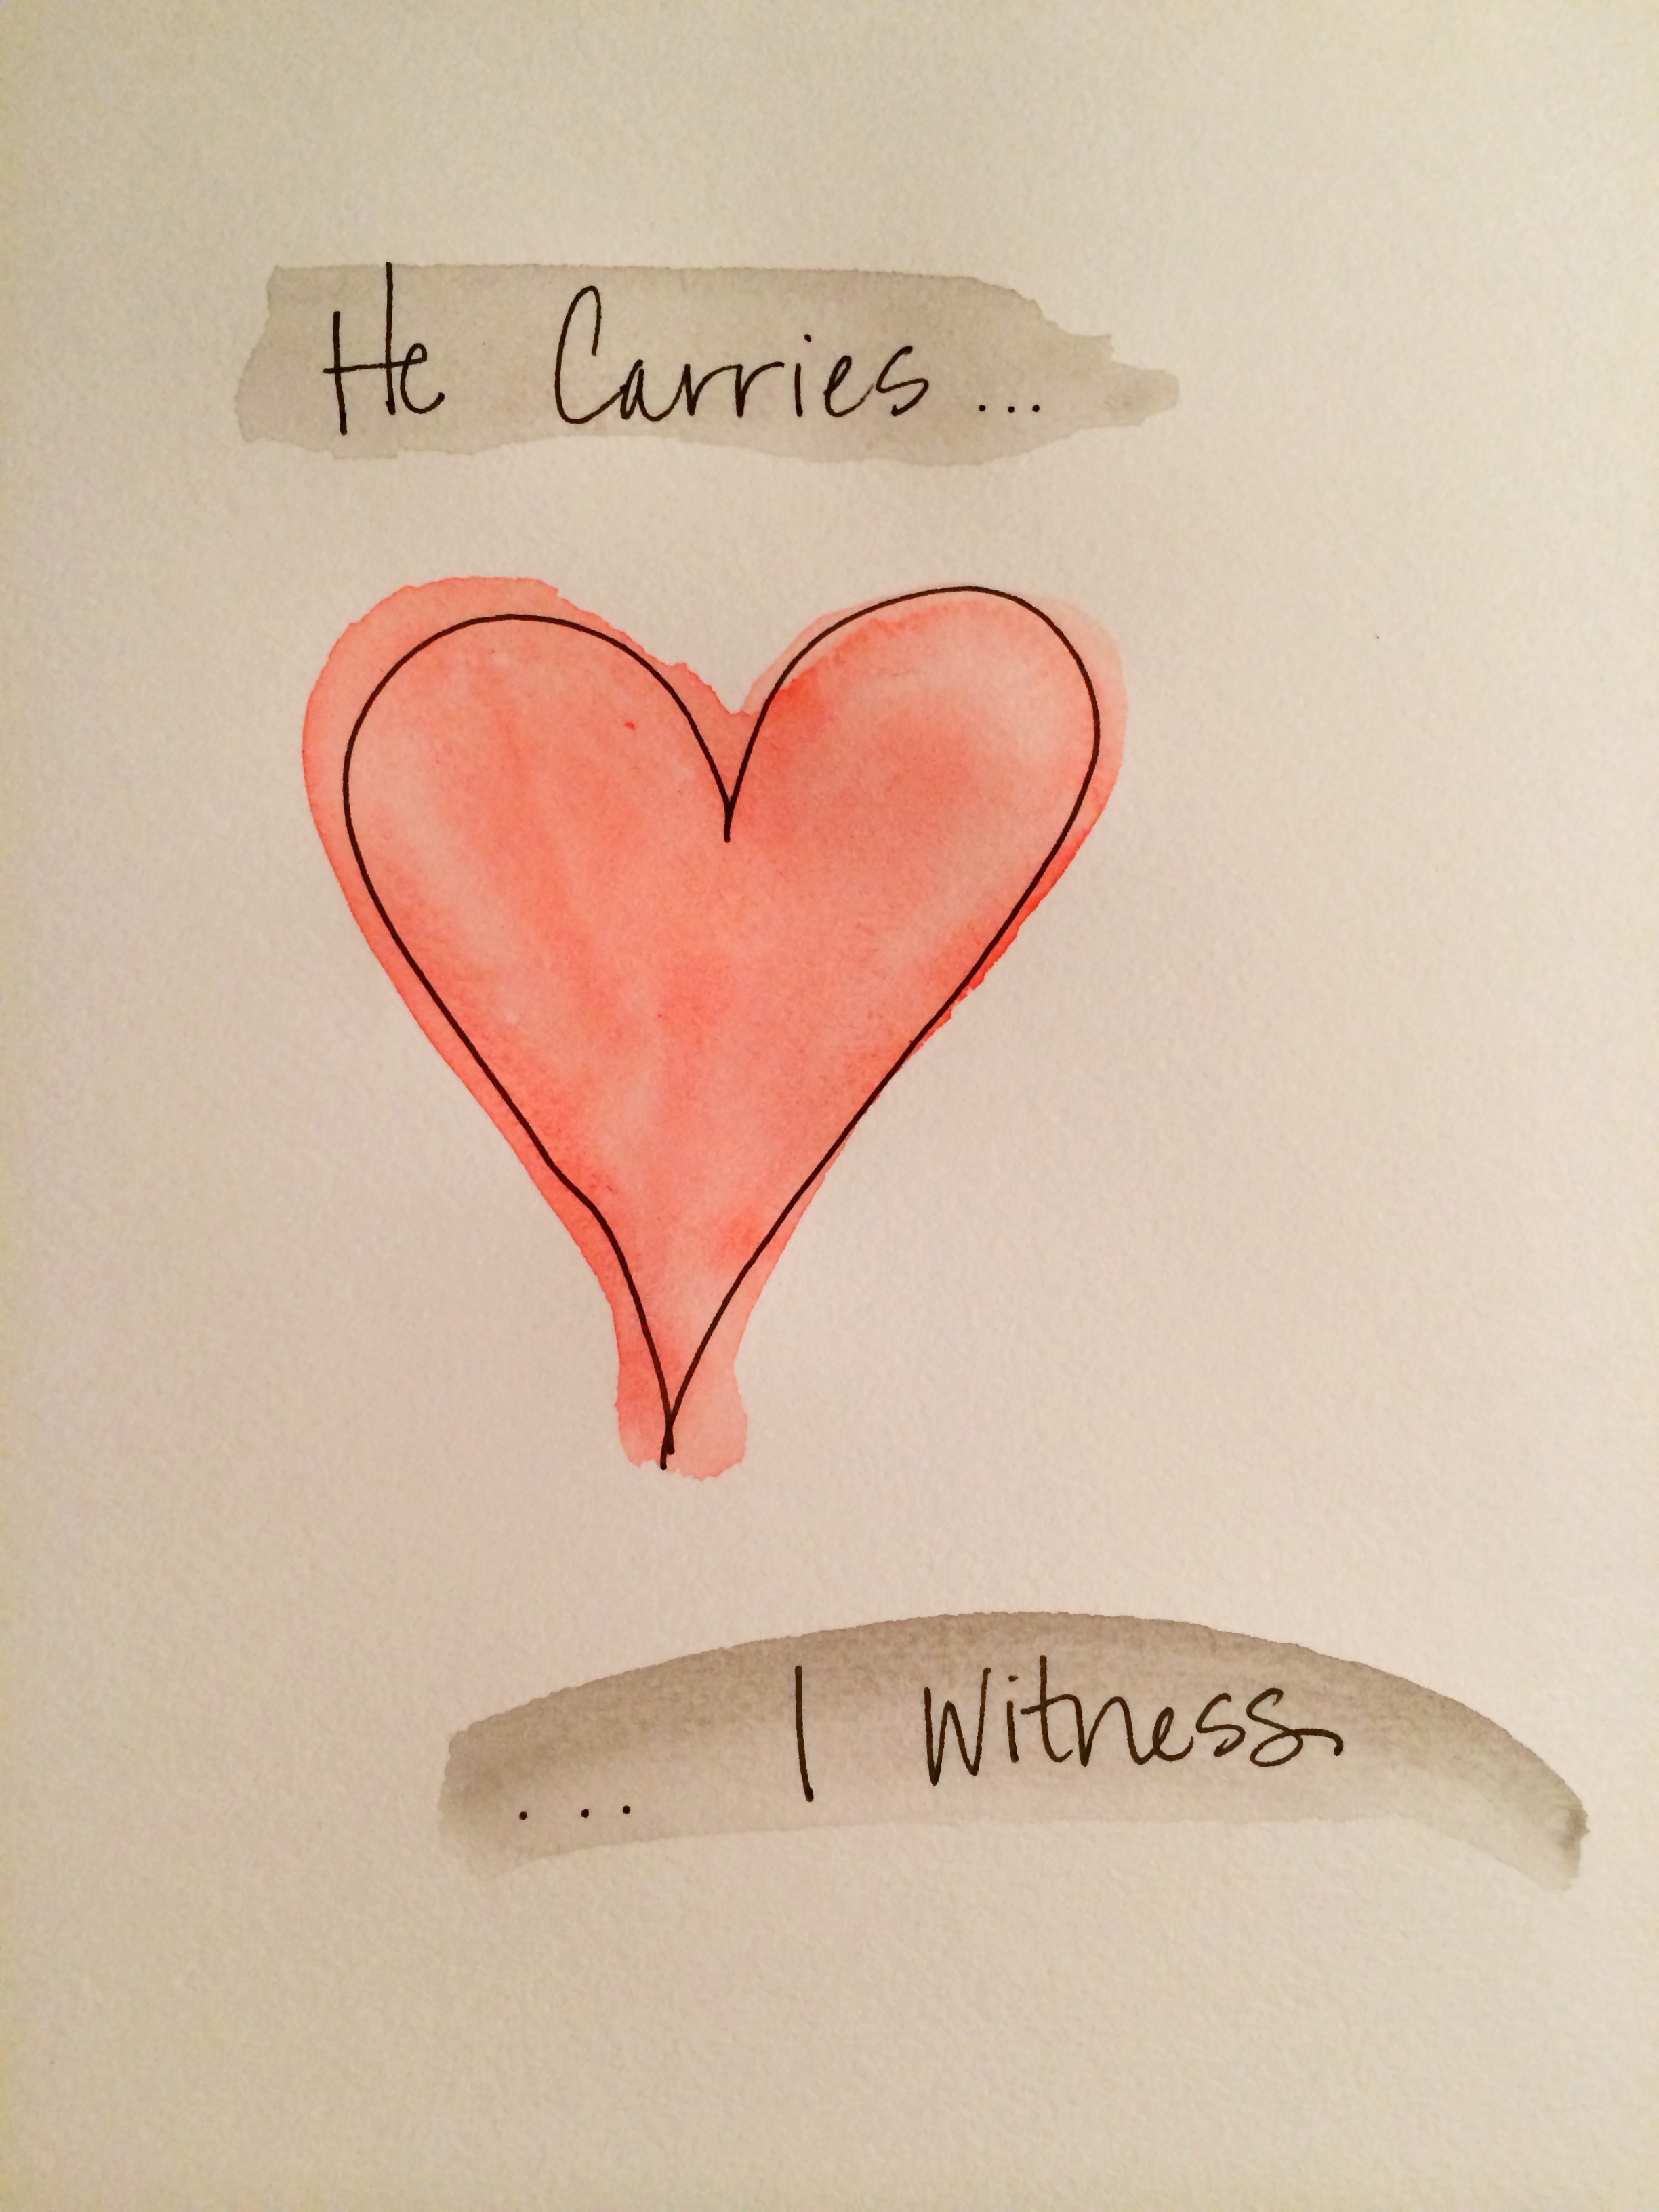 He Carries...
... I Witness